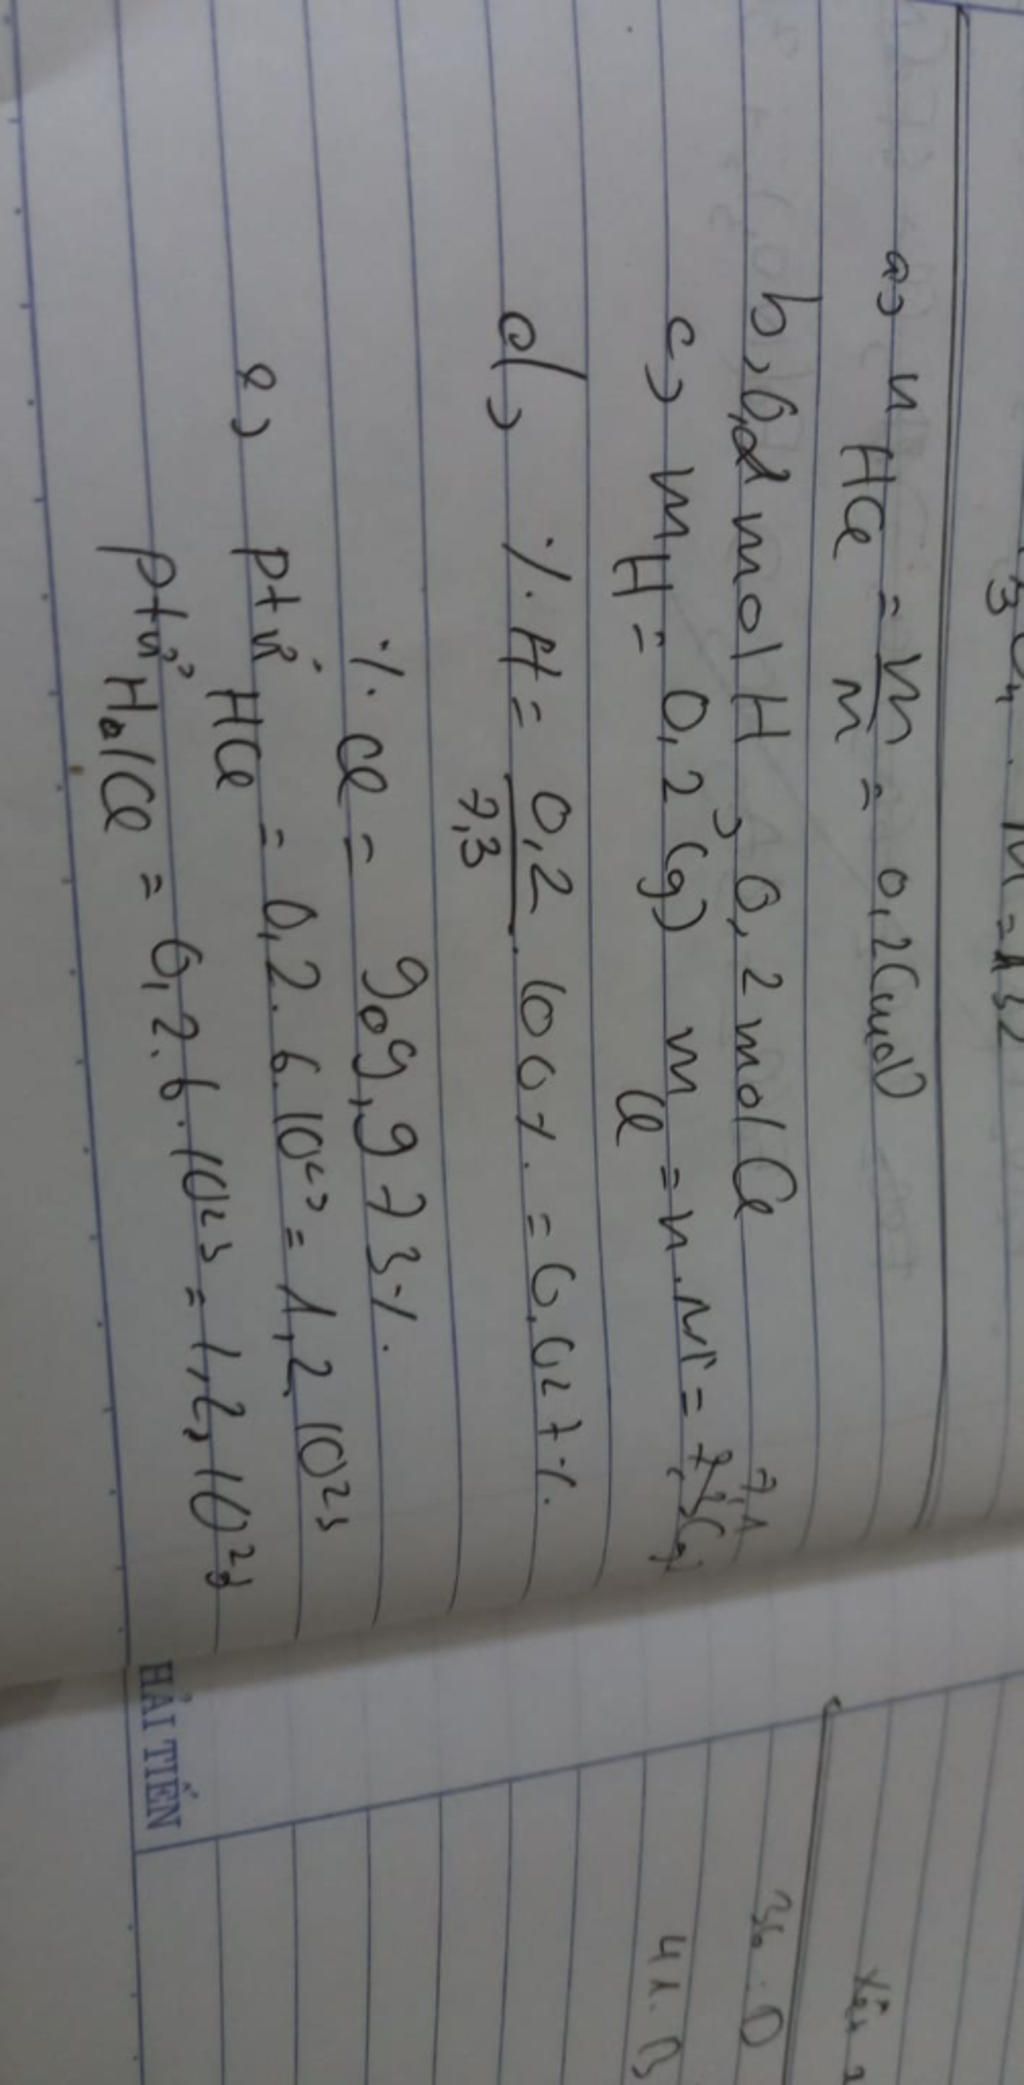 M = 132
a) n HCl = m/M = 0,2 (mol)
b, 0,2 mol H, 0,2 mol Cl
c) m H = 0,2 (g) m Cl = n.M = 7,1
d) %H = 0,2/7,3 . 100% = 0,027%
%Cl = 909,973%
e) ptử HCl = 0,2.6.10²³ = 1,2 10²³
ptử H₂/Cl = 0,2.6.10²³ = 1,2,10²³
HẢI TIẾN
36.D
41.B